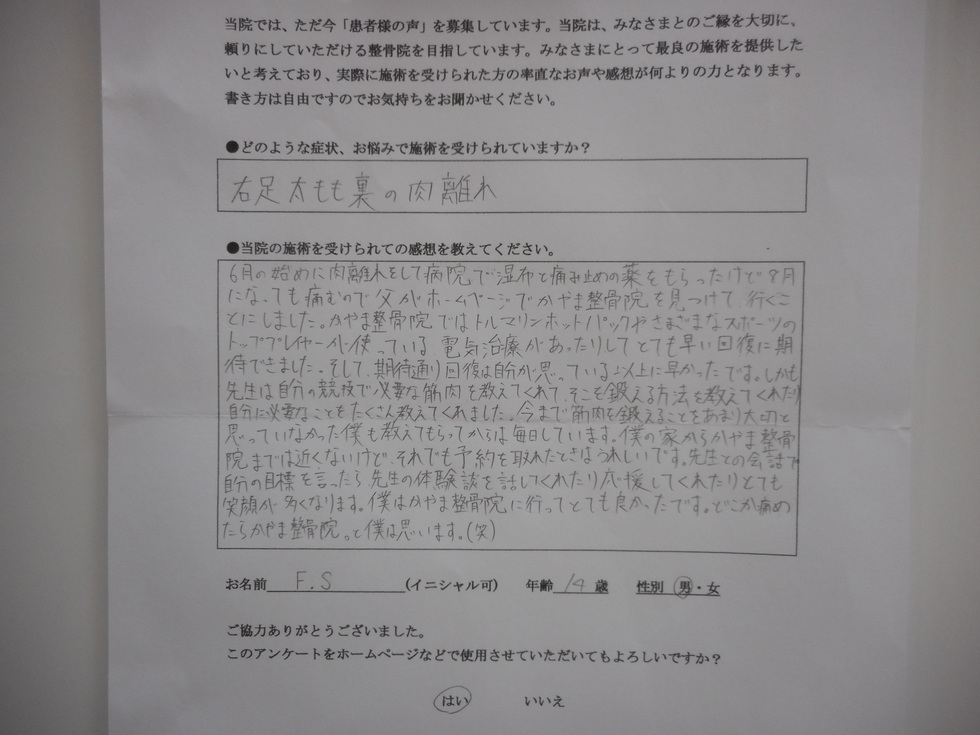 当院では、ただ今「患者様の声」を募集しています。当院は、みなさまとのご縁を大切に、
頼りにしていただける整骨院を目指しています。みなさまにとって最良の施術を提供した
いと考えており、実際に施術を受けられた方の率直なお声や感想が何よりの力となります。
書き方は自由ですのでお気持ちをお聞かせください。
●どのような症状、お悩みで施術を受けられていますか？
右足太もも裏の肉離れ
●当院の施術を受けられての感想を教えてください。
6月の始めに肉離れをして病院で湿布と痛み止めの薬をもらったけど8月
になっても痛むので父がホームページでかやま整骨院を見つけて行くこ
とにしました。かやま整骨院ではトルマリンホットパックやさまざまなスポーツの
トッププレイヤーが使っている電気治療があったりしてとても早い回復に期
待できました。そして、期待通り回復は自分が思っている以上に早かったです。しかも
先生は自分の競技で必要な筋肉を教えてくれて、そこを鍛える方法を教えてくれたり
自分に必要なことをたくさん教えてくれました。今まで筋肉を鍛えることをあまり大切と
思っていなかった僕も教えてもらってからは毎日しています。僕の家からかやま整骨
院までは近くないけど、それでも予約を取れたときはうれしいです。先生との会話で
自分の目標を言ったら先生の体験談を話してくれたり応援してくれたりとても
笑顔が多くなります。僕はかやま整骨院に行ってとても良かったです。どこか痛め
たらかやま整骨院っと僕は思います。(笑)
お名前 F.S (イニシャル可) 年齢 14 歳 性別 男・女
ご協力ありがとうございました。
このアンケートをホームページなどで使用させていただいてもよろしいですか？
はい いいえ